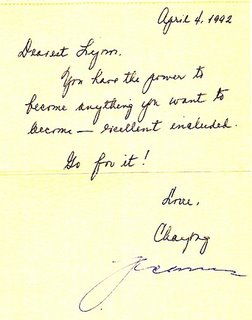 April 4, 1992
Dearest Lynn,
You have the power to
become anything you want to
become — excellent included.
Go for it!
Love,